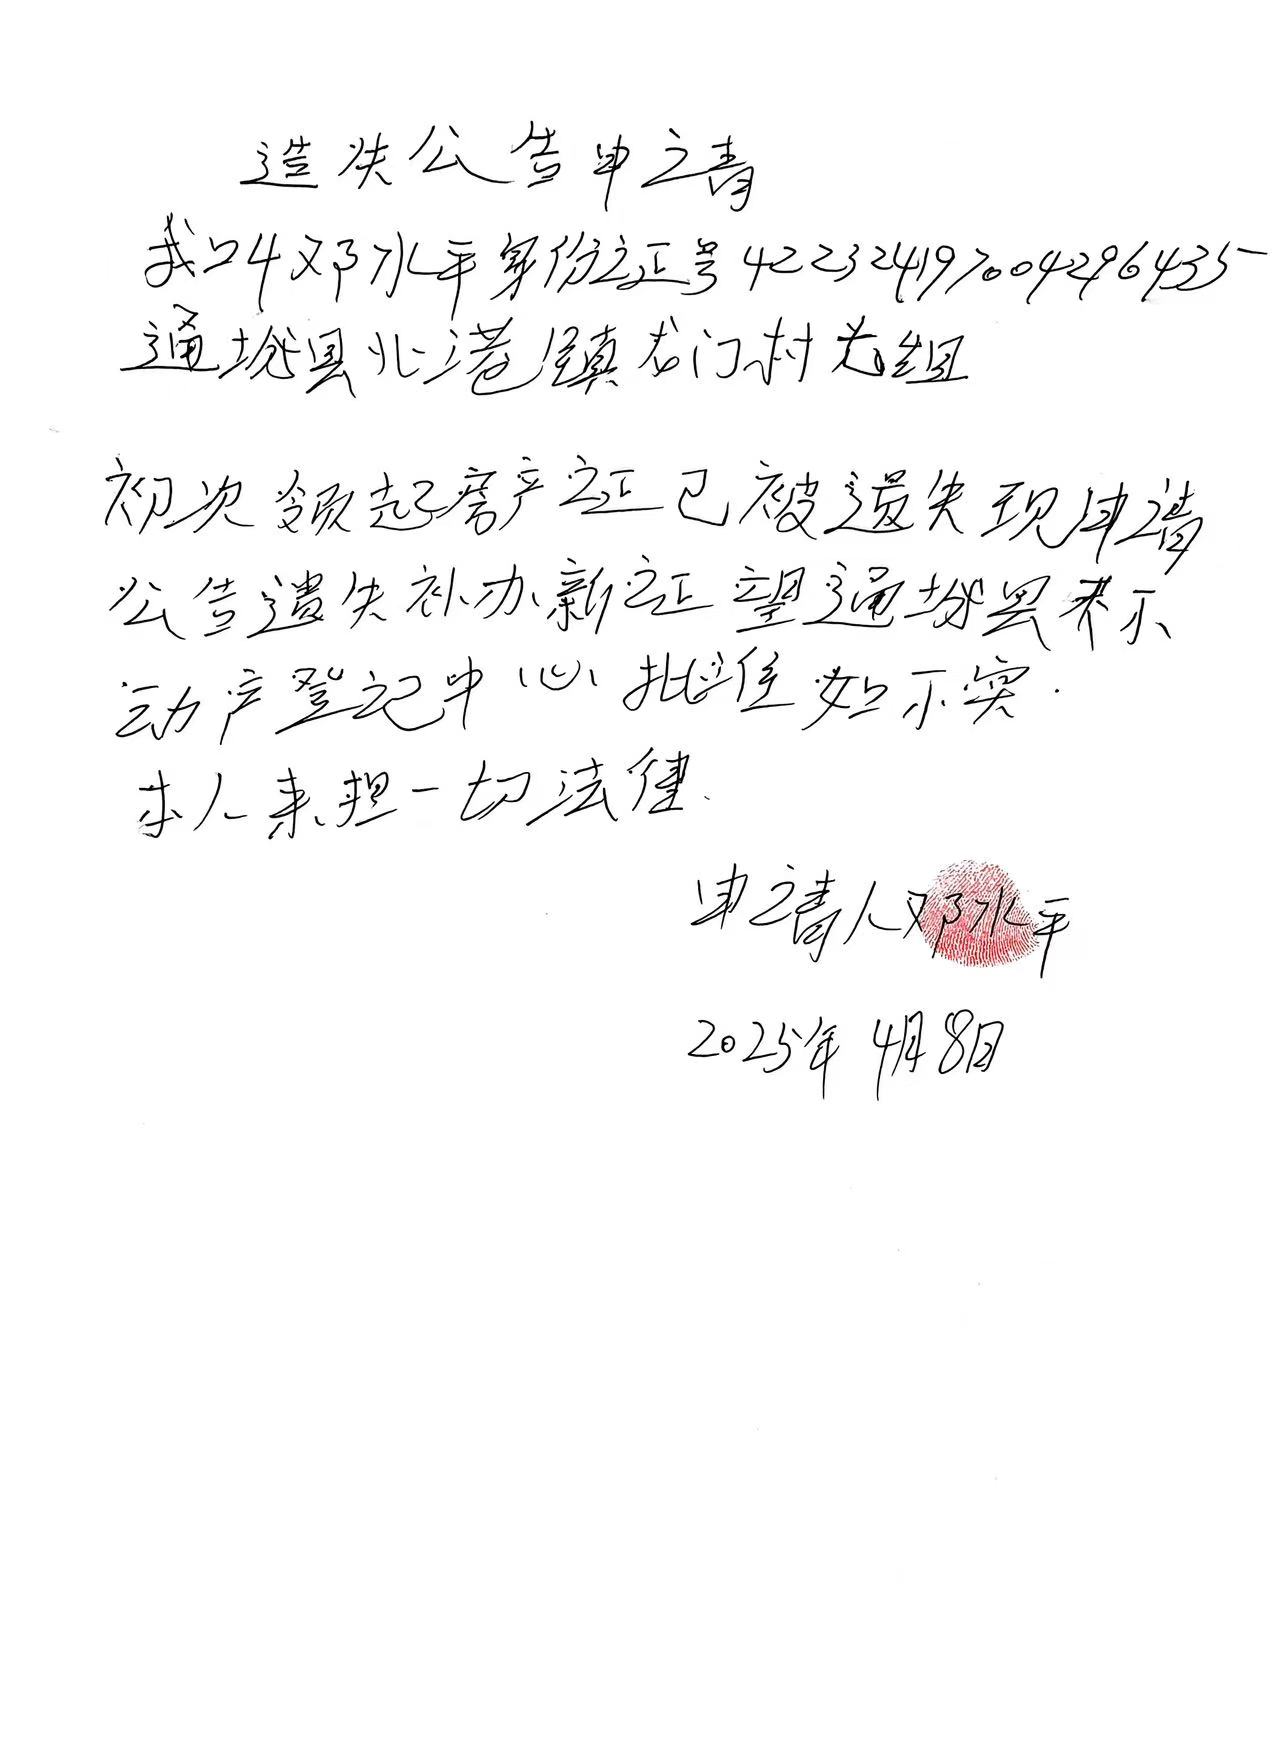 造失公告申请
我叫邓水平身份证号422324197004296435
通城县北港镇龙门村尤组
初次领起房产证已被遗失现申请
公告遗失补办新证望通城县不
动产登记中心批准如不实.
本人来担一切法律.
申请人邓水平
2025年4月8日